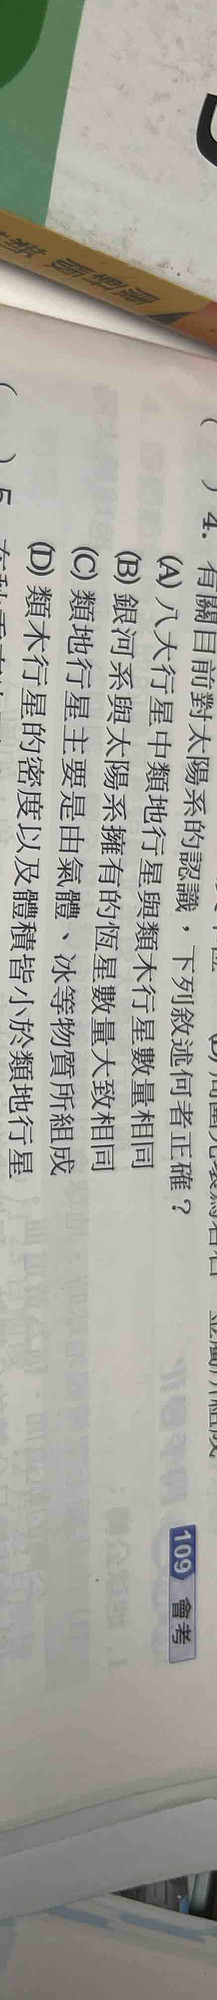 ( ) 4. 有關目前對太陽系的認識，下列敘述何者正確？ 109 會考
(A) 八大行星中類地行星與類木行星數量相同
(B) 銀河系與太陽系擁有的恆星數量大致相同
(C) 類地行星主要是由氣體、冰等物質所組成
(D) 類木行星的密度以及體積皆小於類地行星
( ) 5.